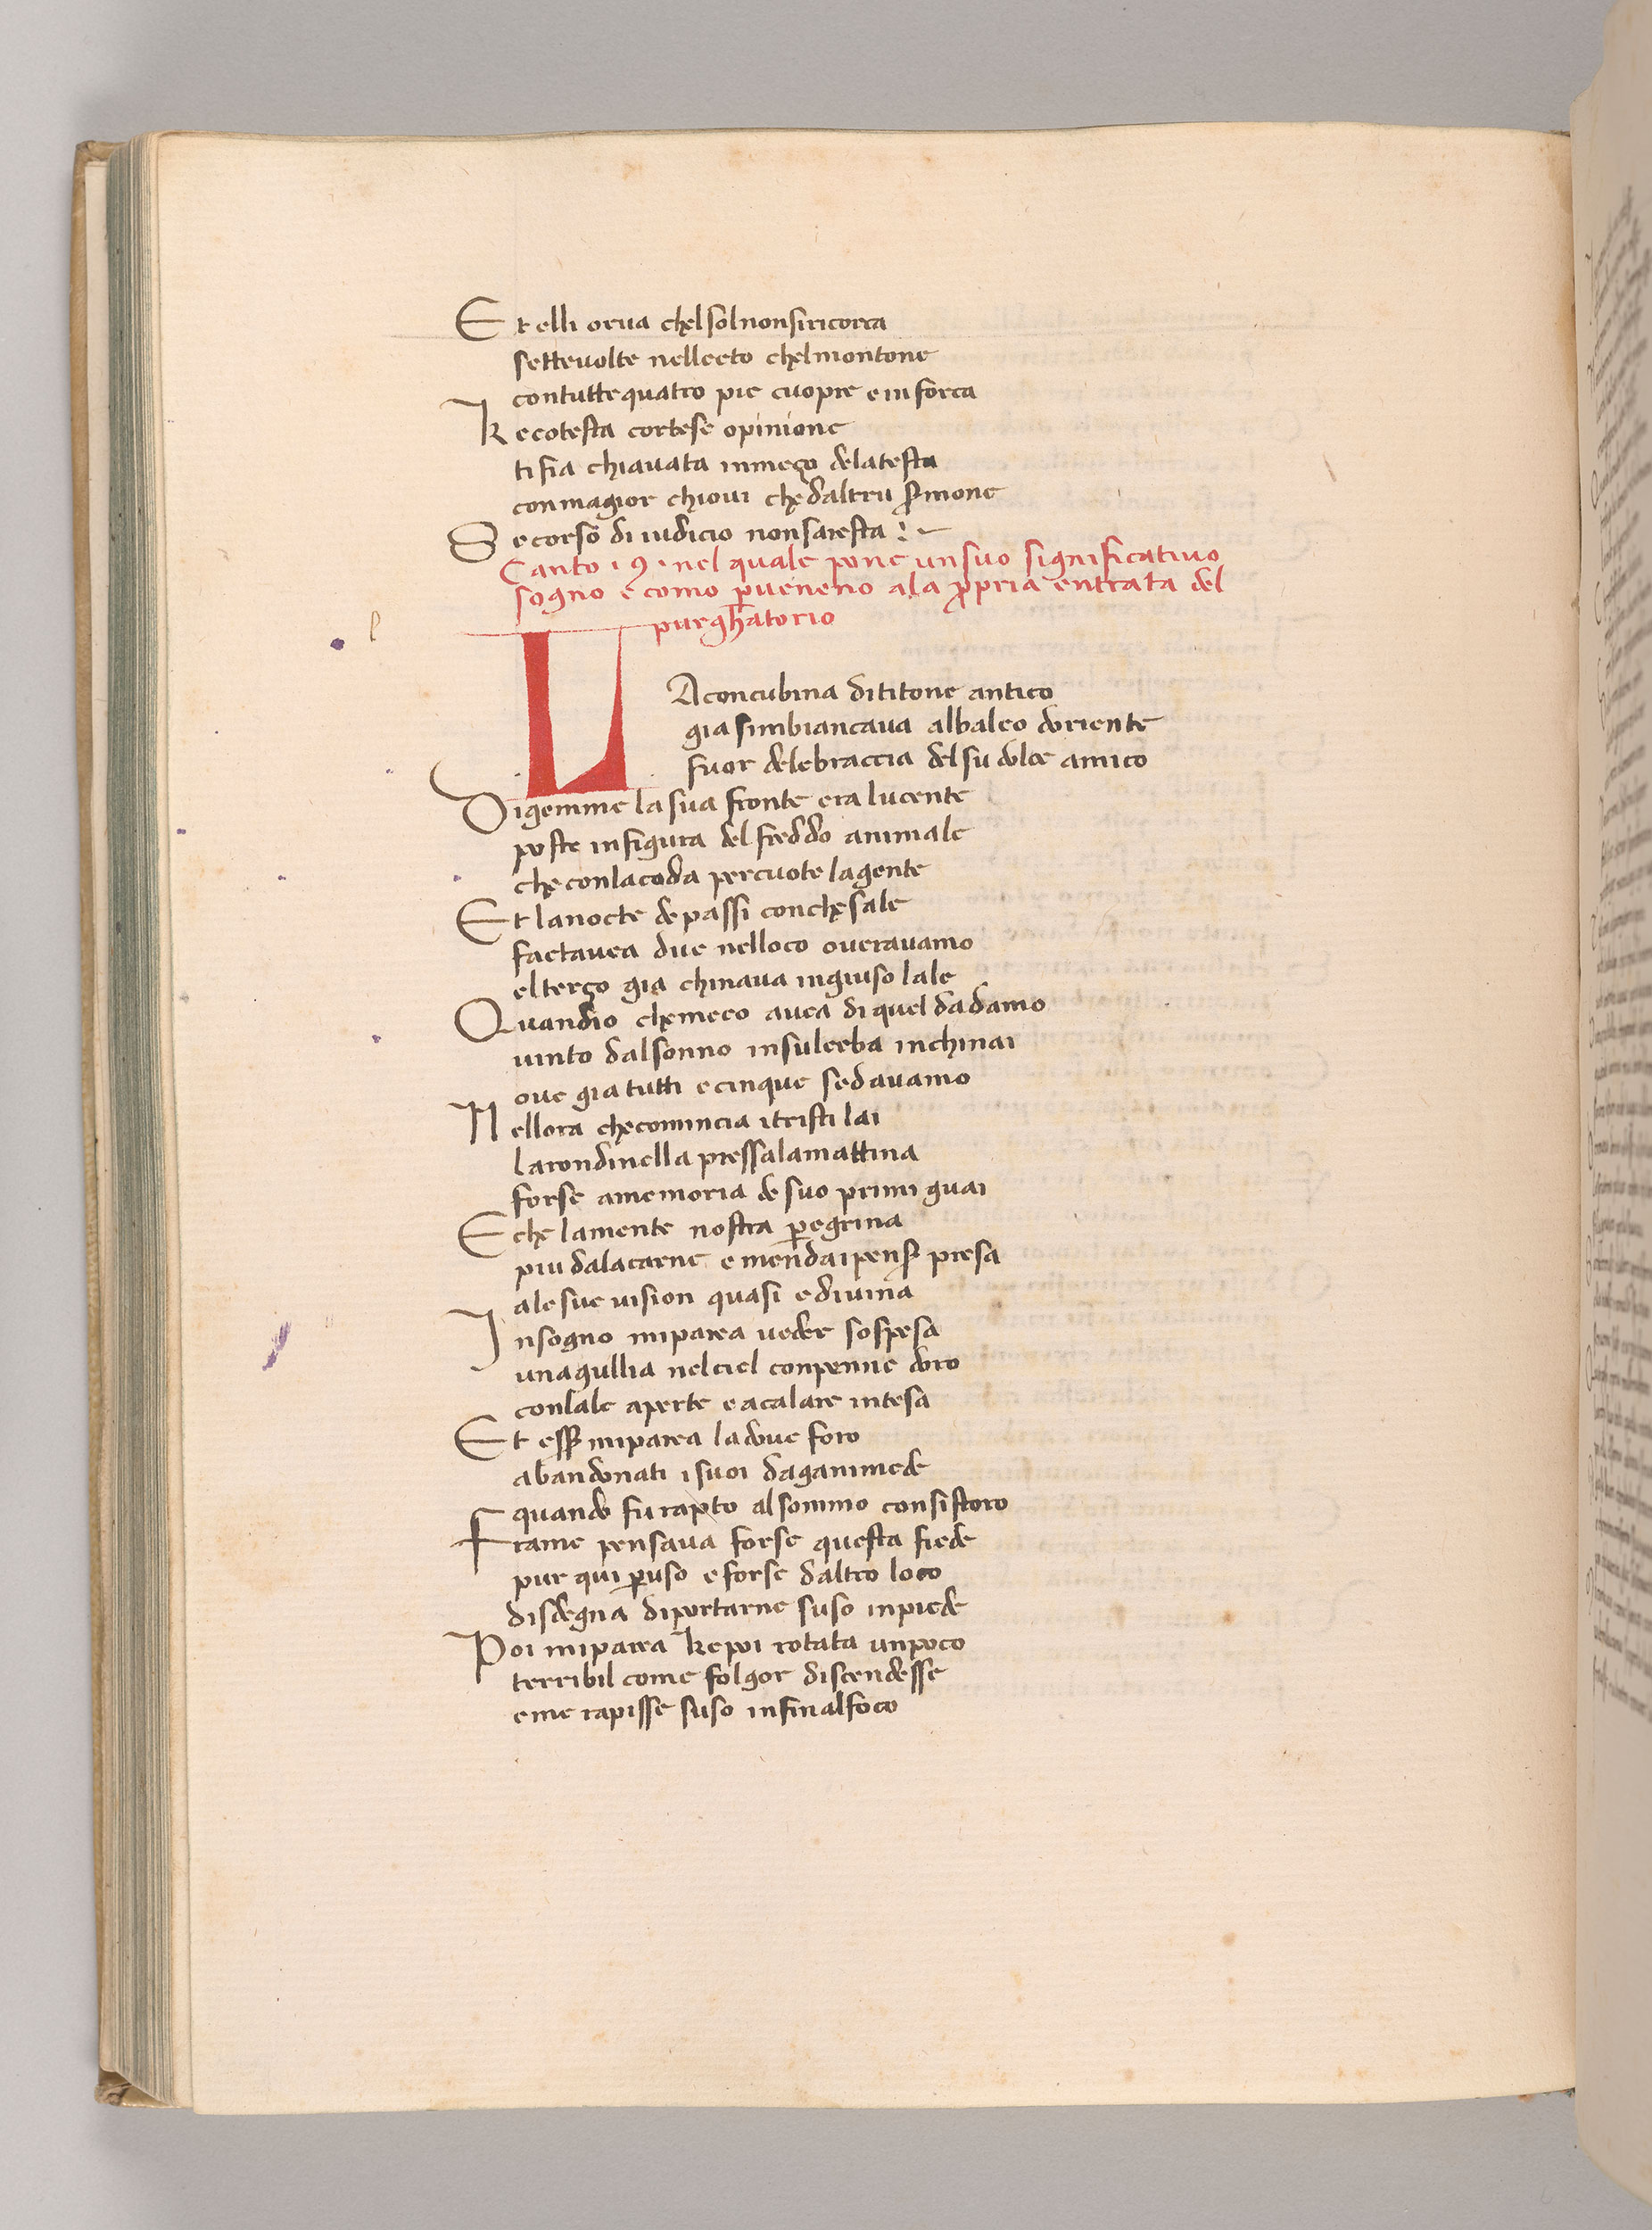 Et elli orua chęl sol non si ricorca
sette uolte nelleeto chęl montone
con tutte quatro pie cuopre e inforca
Ke cotesta cortese opinione
ti fia chiauata in meço de la testa
con magior chioui chę daltru s̄mone
Se corso di iudicio non saresta :~
Canto .9. nel quale pone un suo significatiuo
sogno e como p̱ueneno a la ꝓpria entrata del
purghatorio
LA concubina di titone antico
gia simbiancaua al balco doriente
fuor de le braccia del su dolce amico
Di gemme la sua fronte era lucente
poste in figura del freddo animale
chę con la coda percuote la gente
Et la nocte de passi con chę sale
fact auea due nel loco oue rauamo
el terço gia chinaua ingiuso lale
Quandio chę meco auea di quel dadamo
uinto dal sonno in su lerba inchinai
oue gia tutti e cinque sedauamo
Nellora chę comincia i tristi lai
la rondinella pressa la mattina
forse a memoria de suo primi guai
E chę la mente nostra ꝑegrina
piu da la carne e men da i pens̄ presa
a le sue uision quasi e diuina
In sogno mi parea ueder sospesa
un agullia nel ciel con penne doro
con lale aperte e a calare intesa
Et ess̄ mi parea la doue foro
abandonati i suoi da ganimede
quando fu rapto al sommo consistoro
Fra me pensaua forse questa fiede
pur qui ꝑ uso e forse daltro loco
disdegna di portarne suso in piede
Poi mi parea ke poi rotata un poco
terribil come folgor discendesse
e me rapisse suso infin al foco